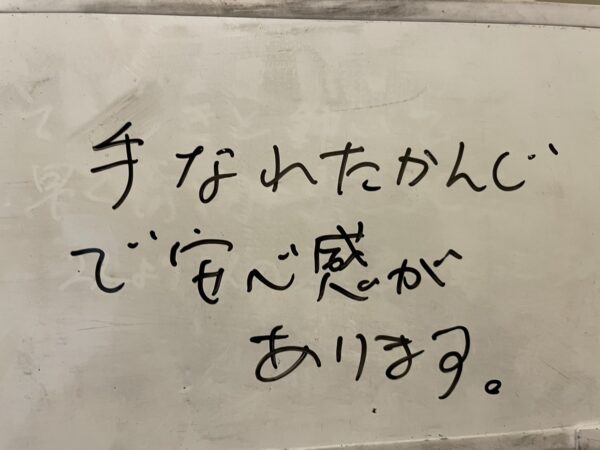 手なれたかんじ
で安心感が
あります。